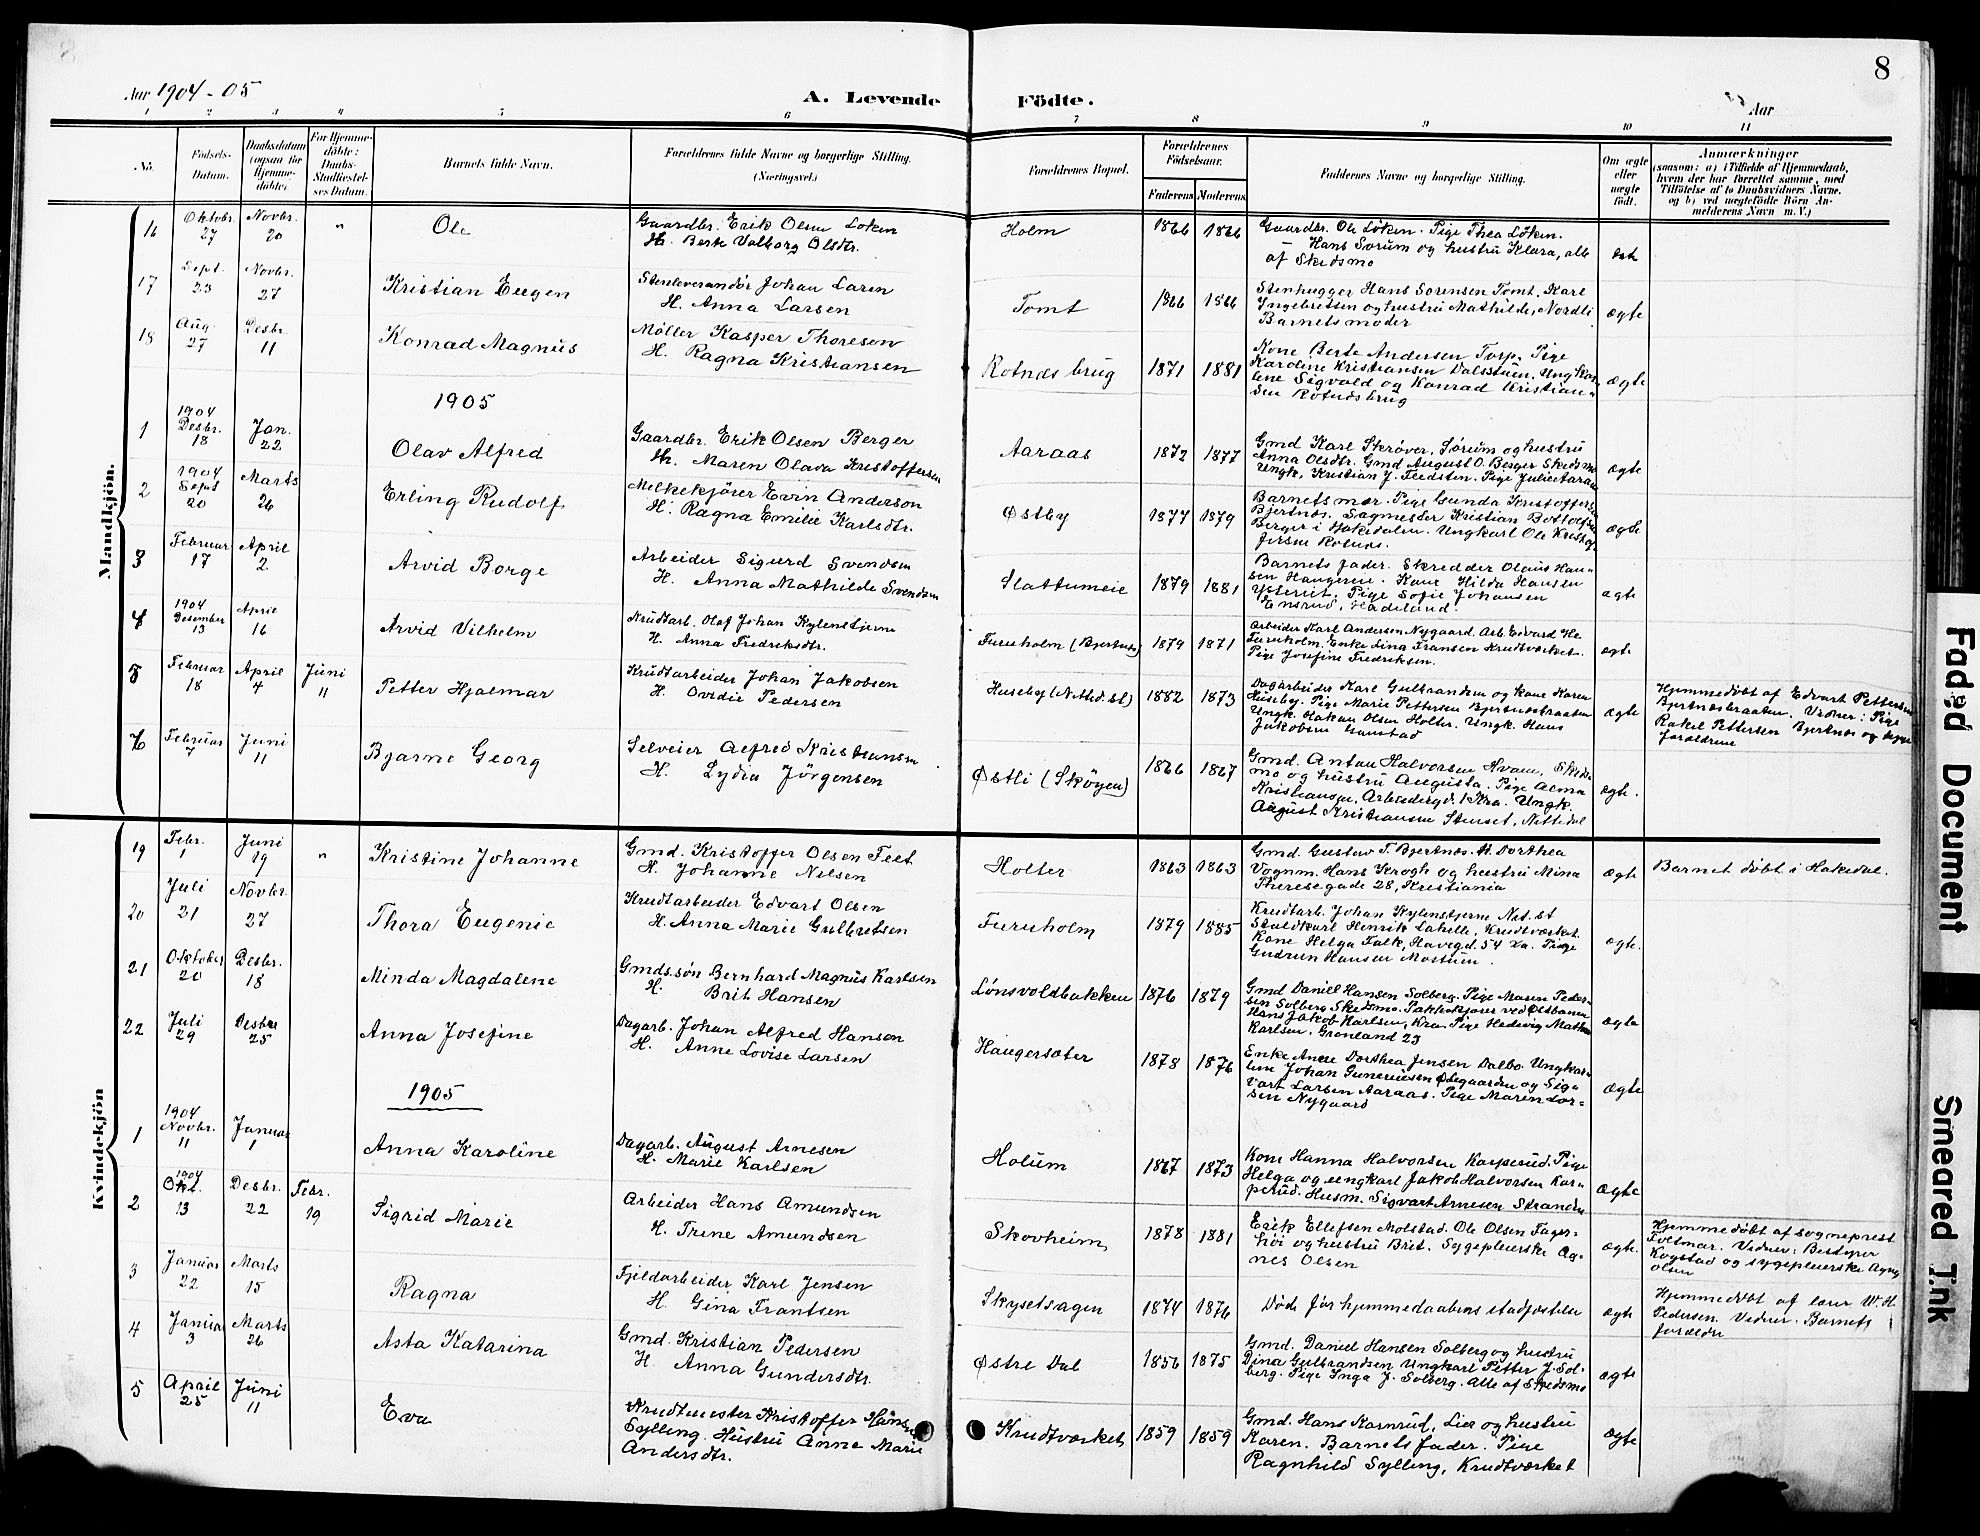 8
Aar 1904 - 05
A. Levende Födte.
Aar
1 2 3 4 5 6 7 8 9 10 11
No.
Födsels-
Datum.
Daabsdatum
(ogsaa for
Hjemme-
döbte).
For Hjemme-
döbte:
Daabs-
Stadfæstel-
ses Datum.
Barnets fulde Navn.
Forældrenes fulde Navne og borgerlige Stilling.
(Næringsvei.)
Forældrenes Bopæl.
Forældrenes
Födselsaar.
Faderens Moderens
Faddernes Navne og borgerlige Stilling.
Om ægte
eller
uægte
födt.
Anmærkninger
(saasom: a) i Tilfælde af Hjemmedaab,
hvem der har forrettet samme, med
Tilföielse af to Daabsvidners Navne.
og b) ved uægtefödte Börn An-
melderens Navn m. V.)
Mandkjön.
16
Oktobr.
27
Novbr.
20
"
Ole
Gaardbr. Erik Olsen Løken
H. Berte Valborg Olsdtr.
Holm
1866 1866
Gaardbr. Ole Løken. Pige Thea Løken.
— Hans Sørum og hustru Klara, alle
af Skedsmo
17
Sept.
23
Novbr.
27
Kristian Eugen
Stenleverandör Johan Laren
H. Anna Larsen
Tomt
1866 1866
Stenhugger Hans Sørensen Tomt. Karl
Ingebritsen og hustru Mathilde, Nordli
Barnets moder
ægte
18
Aug.
27
Desbr.
11
Konrad Magnus
Möller Kasper Thoresen
H. Ragna Kristiansen
Rotnæs brug
1871 1881
Kone Berte Andersen Torp. Pige
Karoline Kristiansen Dalsstuen. Ungkar-
lene Sigvald og Konrad Kristian-
sen Rotnæsbrug
ægte
1905
1
1904
Desbr.
18
Jan.
22
Olav Alfred
Gaardbr. Erik Olsen Berger
H. Maren Olava Kristoffersen
Aaraas
1872 1877
Gmd Karl Skrøver, Sørum og hustru
Anna Olsdtr. Gmd August O. Berger Skedsmo
Ungk. Kristian J. Fledsten. Pige Julie Aaraas
ægte
2
1904
Sept
20
Marts
26
Erling Rudolf
Melkekjører Evin Anderson
H. Ragna Emilie Karlsdtr.
Østby
1877 1879
Barnets mor. Pige Gunda Kristoffersen
Bjertnæs. Sagmester Kristian Bottolfsen
Berger i Hakedalen. Ungkarl Ole Kristof-
fersen Rotnæs.
ægte
3
Februar
17
April
2
Arvid Borge
Arbeider Sigurd Svendsen
H. Anna Mathilde Svendsen
Slattumeie
1879 1881
Barnets fader. Skredder Olaus Han-
sen Haugerene. Kone Hilda Hansen
Ysterud. Pige Sofie Johansen
Ensrud, Hadeland.
ægte
4
1904
Desember
13
April
16
Arvid Vilhelm
Krudtarb. Olaf Johan Kylenstjerne
H. Anna Fredriksdtr.
Furuholm (Bjertnæs)
1879 1871
Arbeider Karl Andersen Nygaard. Arb. Edvard
Furuholm. Enke Lina Fransen Krudtværket.
Pige Josefine Fredriksen.
ægte
5
Februar
18
April
4
Juni
11
Petter Hjalmar
Krudtarbeider Johan Jakobsen
H. Ovidie Pedersen
Huseby (Nitted. st)
1882 1873
Dagarbeider Karl Gulbrandsen og kone Karen
Huseby. Pige Marie Pettersen Bjertnæsbraaten
Ungk. Håkan Olsen Holter. Ungk. Hans
Jakobsen Gaustad
ægte
Hjemmedöbt af Edvart Pettersen
Bjertnæsbraaten. Vidner: Pige
Rakel Pettersen Bjertnæs og begge
forældrene
6
Februar
7
Juni
11
Bjarne Georg
Selveier Alfred Kristiansen
H. Lydia Jörgensen
Østli (Skøyen)
1866 1867
Gmd. Anton Halvorsen Hvam, Skeds-
mo og hustru Augusta. Pige Alma
Kristiansen, Arbeidergd. 1 Kra. Ungk.
August Kristiansen Stenset, Nittedal
ægte.
Kvindekjön
19
Febr.
1
Juni
19
"
Kristine Johanne
Gmd. Kristoffer Olsen Teet
H. Johanne Nilsen
Holter
1863 1863
Gmd. Gustav T. Bjertnæs. H. Dorthea
Vognm. Hans Krogh og hustru Mina
Theresegade 28, Kristiania
ægte
Barnet döbt i Hakedal.
20
Juli
21
Novbr.
27
Thora Eugenie
Krudtarbeider Edvart Olsen
H. Anna Marie Gulbrætsen
Furuholm
1879 1885
Krudtarb. Johan Kylenstjerne Nit. st
Staldkarl Henrik Lahelle, Krudtværket.
Kone Helga Falk, Havegd. 54 Kra. Pige
Gudrun Hansen Mostuen.
ægte.
21
Oktober
20
Desbr.
18
Minda Magdalene
Gmds.søn Bernhard Magnus Karlsen
H. Brit Hansen
Lønsvoldbakken
1876 1879
Gmd Daniel Hansen Solberg. Pige Maren Peder-
sen Solberg Skedsmo. Pakkekjører ved Østbanen
Hans Jakob Karlsen, Kra. Pige Hedevig
Karlsen. Grønland 23
ægte
22
Juli
29
Desbr
25
Anna Josefine
Dagarb. Johan Alfred Hansen
H. Anne Lovise Larsen
Haugersæter
1878 1876
Enke Anne Dorthea Jensen Dalbo. Ungkar-
lene Johan Gunerius­sen Ødegaarden og Sig-
vart Larsen Aaraas. Pige Maren Lar-
sen Nygaard
ægte
1905
1
1904
Novbr.
11
Januar
1
Anna Karoline
Dagarb. August Arnesen
H. Marie Karlsen
Holum
1867 1873
Kone Hanna Halvorsen Kasperud. Pige
Helga og ungkarl Jakob Halvorsen Kas-
perud. Husm. Sigvart Arnesen Stranden
ægte
2
1904
Okt.
13
Desbr.
22
Febr.
19
Sigrid Marie
Arbeider Hans Amundsen
H. Trine Amundsen
Skovheim
1878 1881
Erik Ellefsen Molstad. Ole Olsen Fager-
höi og hustru Brit. Sygepleierske Ag-
nes Olsen
ægte.
Hjemmedöbt af sogneprest
Foltmar. Vidner: Bestyrer
Kogstad og sygepleierske Agnes
Olsen
3
Januar
22
Marts
15
Ragna
Fjeldarbeider Karl Jensen
H. Gina Frantsen
Skysetsagen
1874 1876
Död før hjemmedaabens stadfæstelse
ægte
Hjemmedöbt af lærer W. H.
Pedersen. Vidner. Barnets
forældre
4
Januar
3
Marts
26
Asta Katarina
Gmd. Kristian Pedersen
H. Anna Gundersdtr.
Østre Dal
1856 1875
Gmd. Daniel Hansen Solberg og hustru
Dina Gulbrandsen Ungkarl Petter J. Sol-
berg. Pige Inga J. Solberg. Alle af Skedsmo
ægte
5
April
25
Juni
11
Eva
Krudtmester Kristoffer Hansen
Sylling. Hustru Anne Marie
Andersdtr.
Krudtværket
1859 1859
Gmd. Hans Karnrud, Lier og hustru
Karen. Barnets fader. Pige
Ragnhild Sylling, Krudtværket
ægte
Faded Document
Smeared Ink